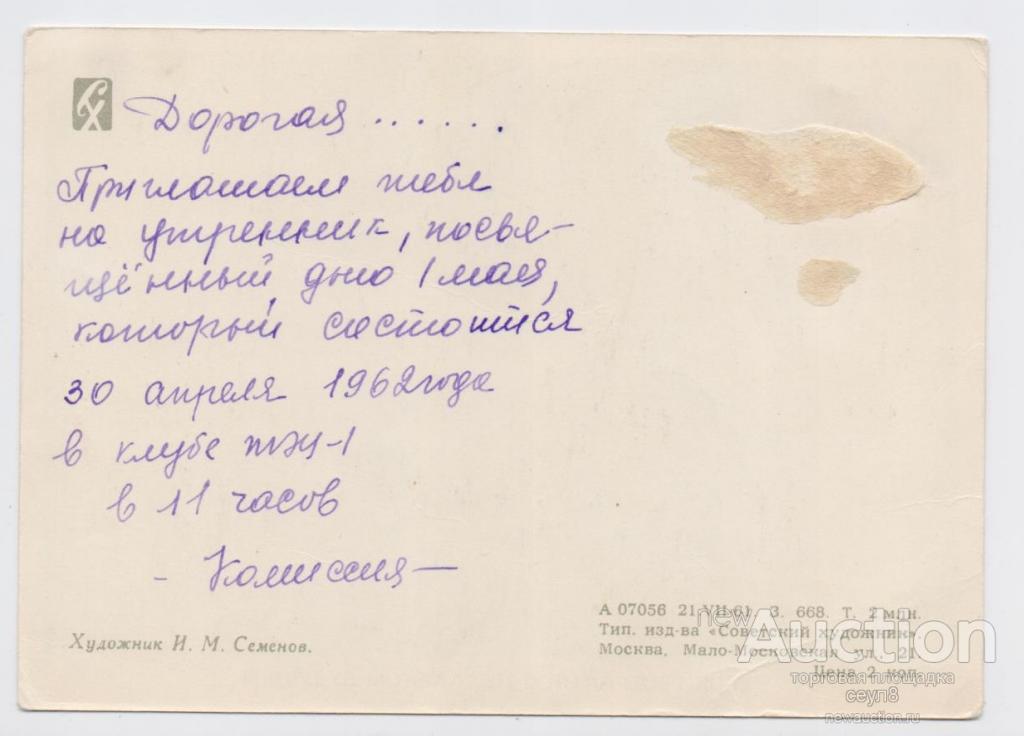 СХ
Дорогая ......
Приглашаем тебя
на утренник, посвя-
щённый дню 1 мая,
который состоится
30 апреля 1962 года
в клубе тэц-1
в 11 часов
- Комиссия -
Художник И. М. Семенов.
А 07056 21-VII-61 З. 668. Т. 2 млн.
Тип. изд-ва «Советский художник».
Москва, Мало-Московская ул., 21
Цена 2 коп.
newAuction
торговая площадка
сеул8
newauction.ru